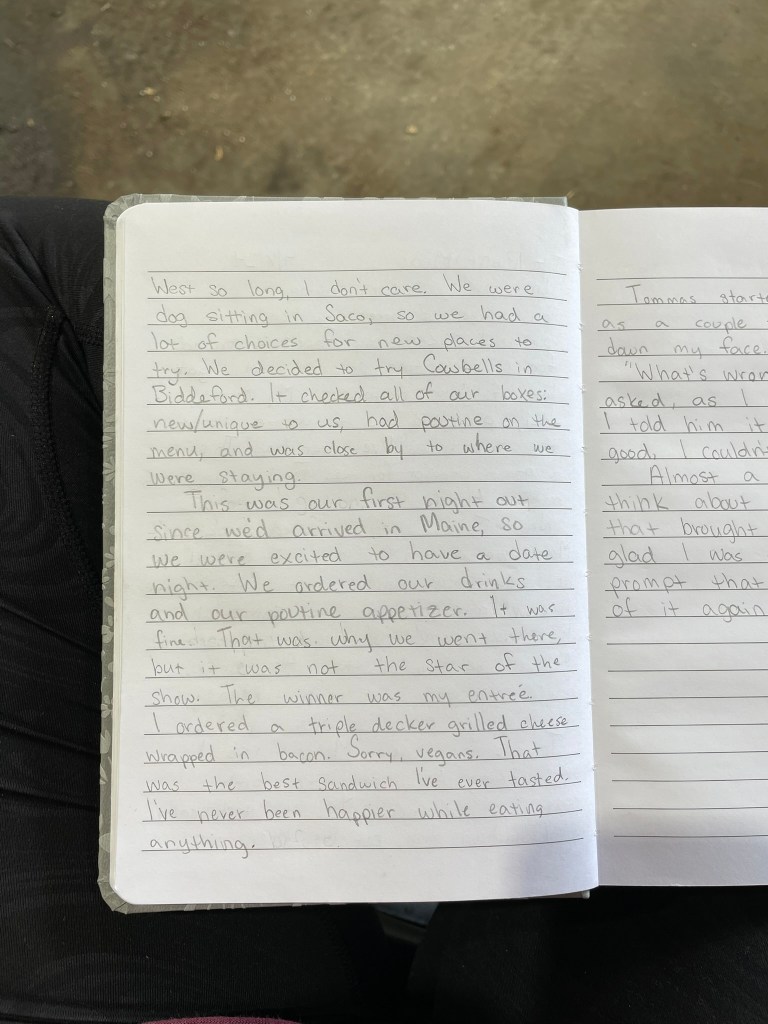 West so long, I don't care. We were
dog sitting in Saco, so we had a
lot of choices for new places to
try. We decided to try Cowbells in
Biddeford. It checked all of our boxes:
new/unique to us, had poutine on the
menu, and was close by to where we
were staying.
This was our first night out
since we'd arrived in Maine, so
we were excited to have a date
night. We ordered our drinks
and our poutine appetizer. It was
fine. That was why we went there,
but it was not the star of the
show. The winner was my entreé.
I ordered a triple decker grilled cheese
wrapped in bacon. Sorry, vegans. That
was the best sandwich I've ever tasted.
I've never been happier while eating
anything.
Tommas
as a couple
down my face.
"What's
asked, as I
I told him it
good, I
Almost a
think about
that brought
glad I was
prompt that
of it again